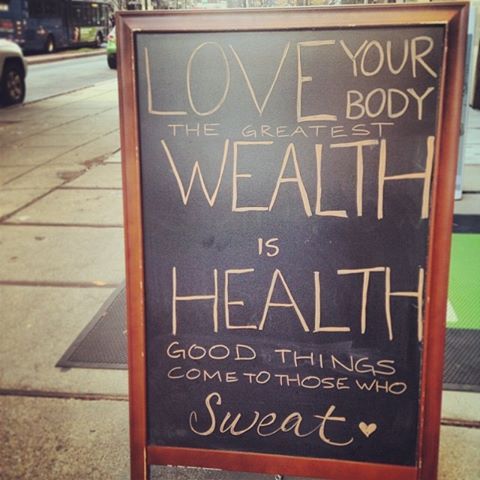 LOVE YOUR
BODY
THE GREATEST
WEALTH
IS
HEALTH
GOOD THINGS
COME TO THOSE WHO
Sweat ♥